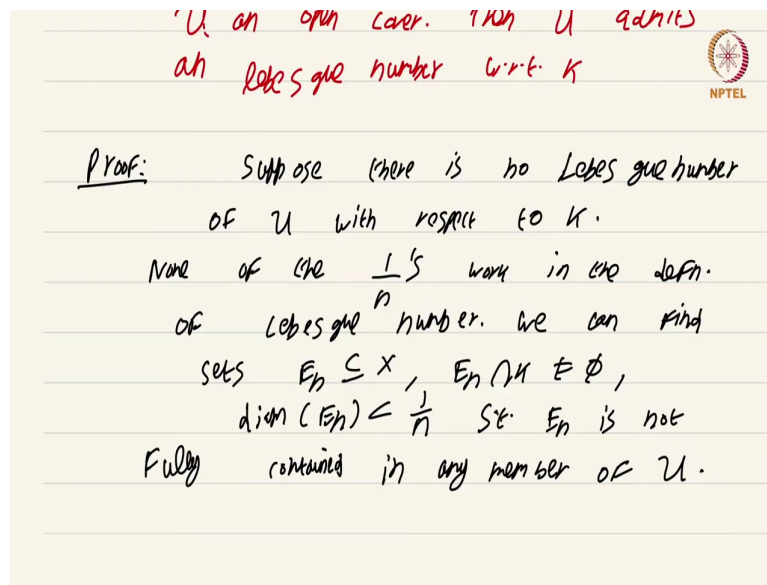 U an open cover. Then U admits
an lebesgue number w.r.t. K
NPTEL
Proof: Suppose there is no Lebesgue number
of U with respect to K.
None of the 1/n's work in the defn.
of Lebesgue number. We can find
sets Eₙ ⊆ X, Eₙ ∩ K ≠ ϕ,
diam (Eₙ) < 1/n s.t. Eₙ is not
Fully contained in any member of U.